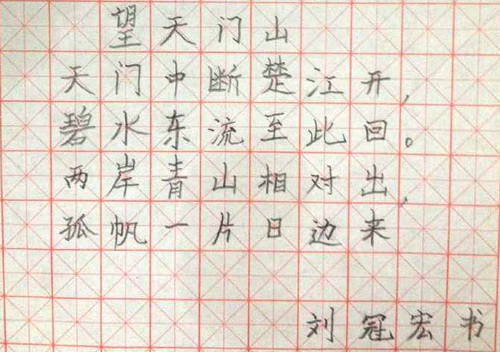 望天门山
天门中断楚江开，
碧水东流至此回。
两岸青山相对出，
孤帆一片日边来
刘冠宏书